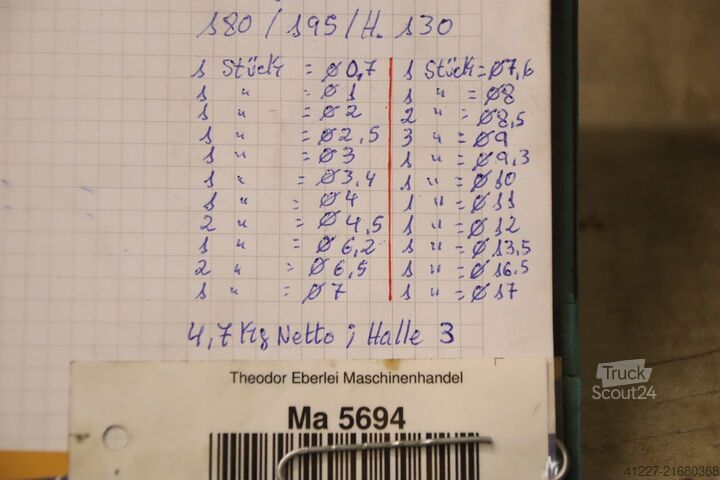 180 / 195 / H. 130
1 Stück = Ø 0,7
1 " = Ø 1
1 " = Ø 2
1 " = Ø 2,5
1 " = Ø 3
1 " = Ø 3,4
1 " = Ø 4
2 " = Ø 4,5
1 " = Ø 6,2
2 " = Ø 6,5
1 " = Ø 7
1 Stück = Ø 7,6
1 " = Ø 8
2 " = Ø 8,5
3 " = Ø 9
1 " = Ø 9,3
1 " = Ø 10
1 " = Ø 11
1 " = Ø 12
1 " = Ø 13,5
1 " = Ø 16,5
1 " = Ø 17
4,7 Kg Netto ; Halle 3
Theodor Eberlei Maschinenhandel
Ma 5694
Truck
Scout24
41227-21680368